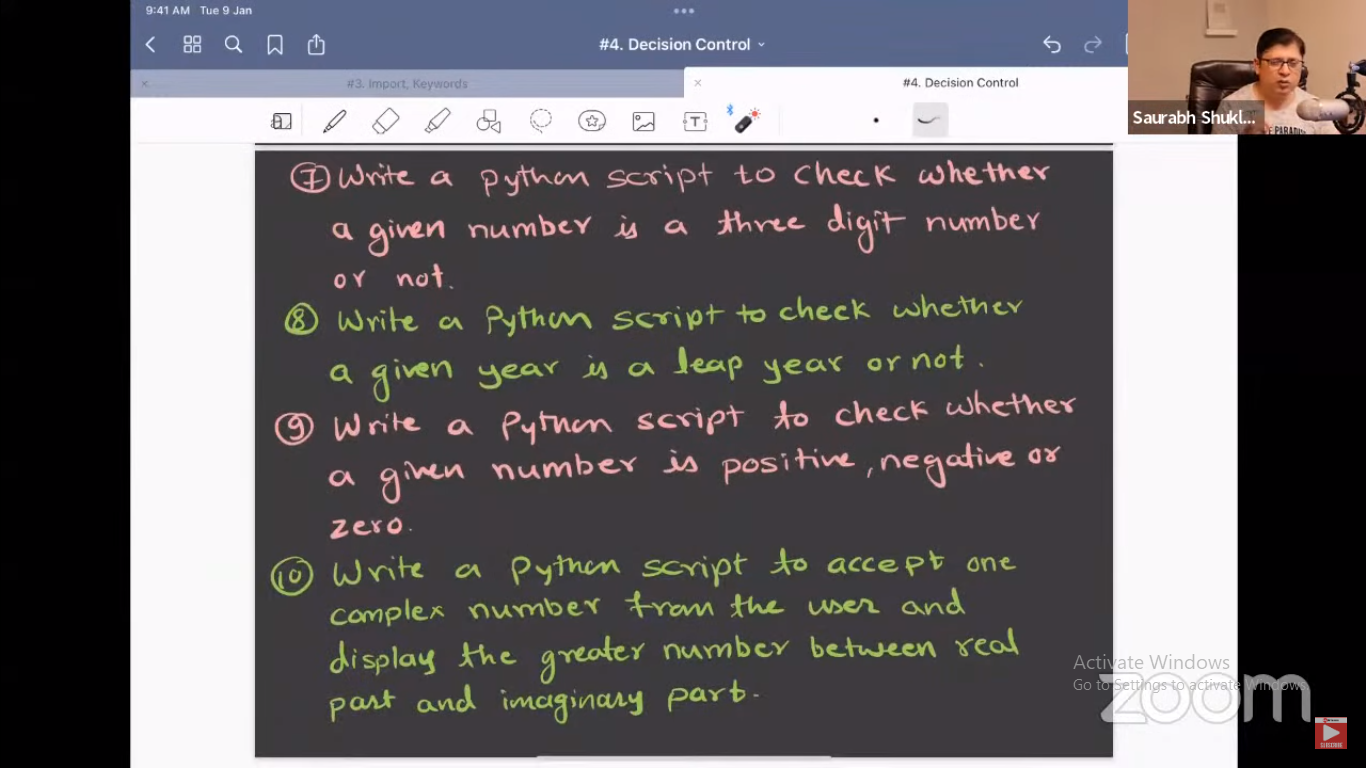 9:41 AM Tue 9 Jan
#4. Decision Control
#3. Import, Keywords
#4. Decision Control
T
Saurabh Shukl...
⑦ Write a python script to check whether
a given number is a three digit number
or not.
⑧ Write a Python script to check whether
a given year is a leap year or not.
⑨ Write a Python script to check whether
a given number is positive, negative or
zero.
⑩ Write a Python script to accept one
complex number from the user and
display the greater number between real
part and imaginary part.
Activate Windows
Go to Settings to activate Windows.
zoom
SUBSCRIBE